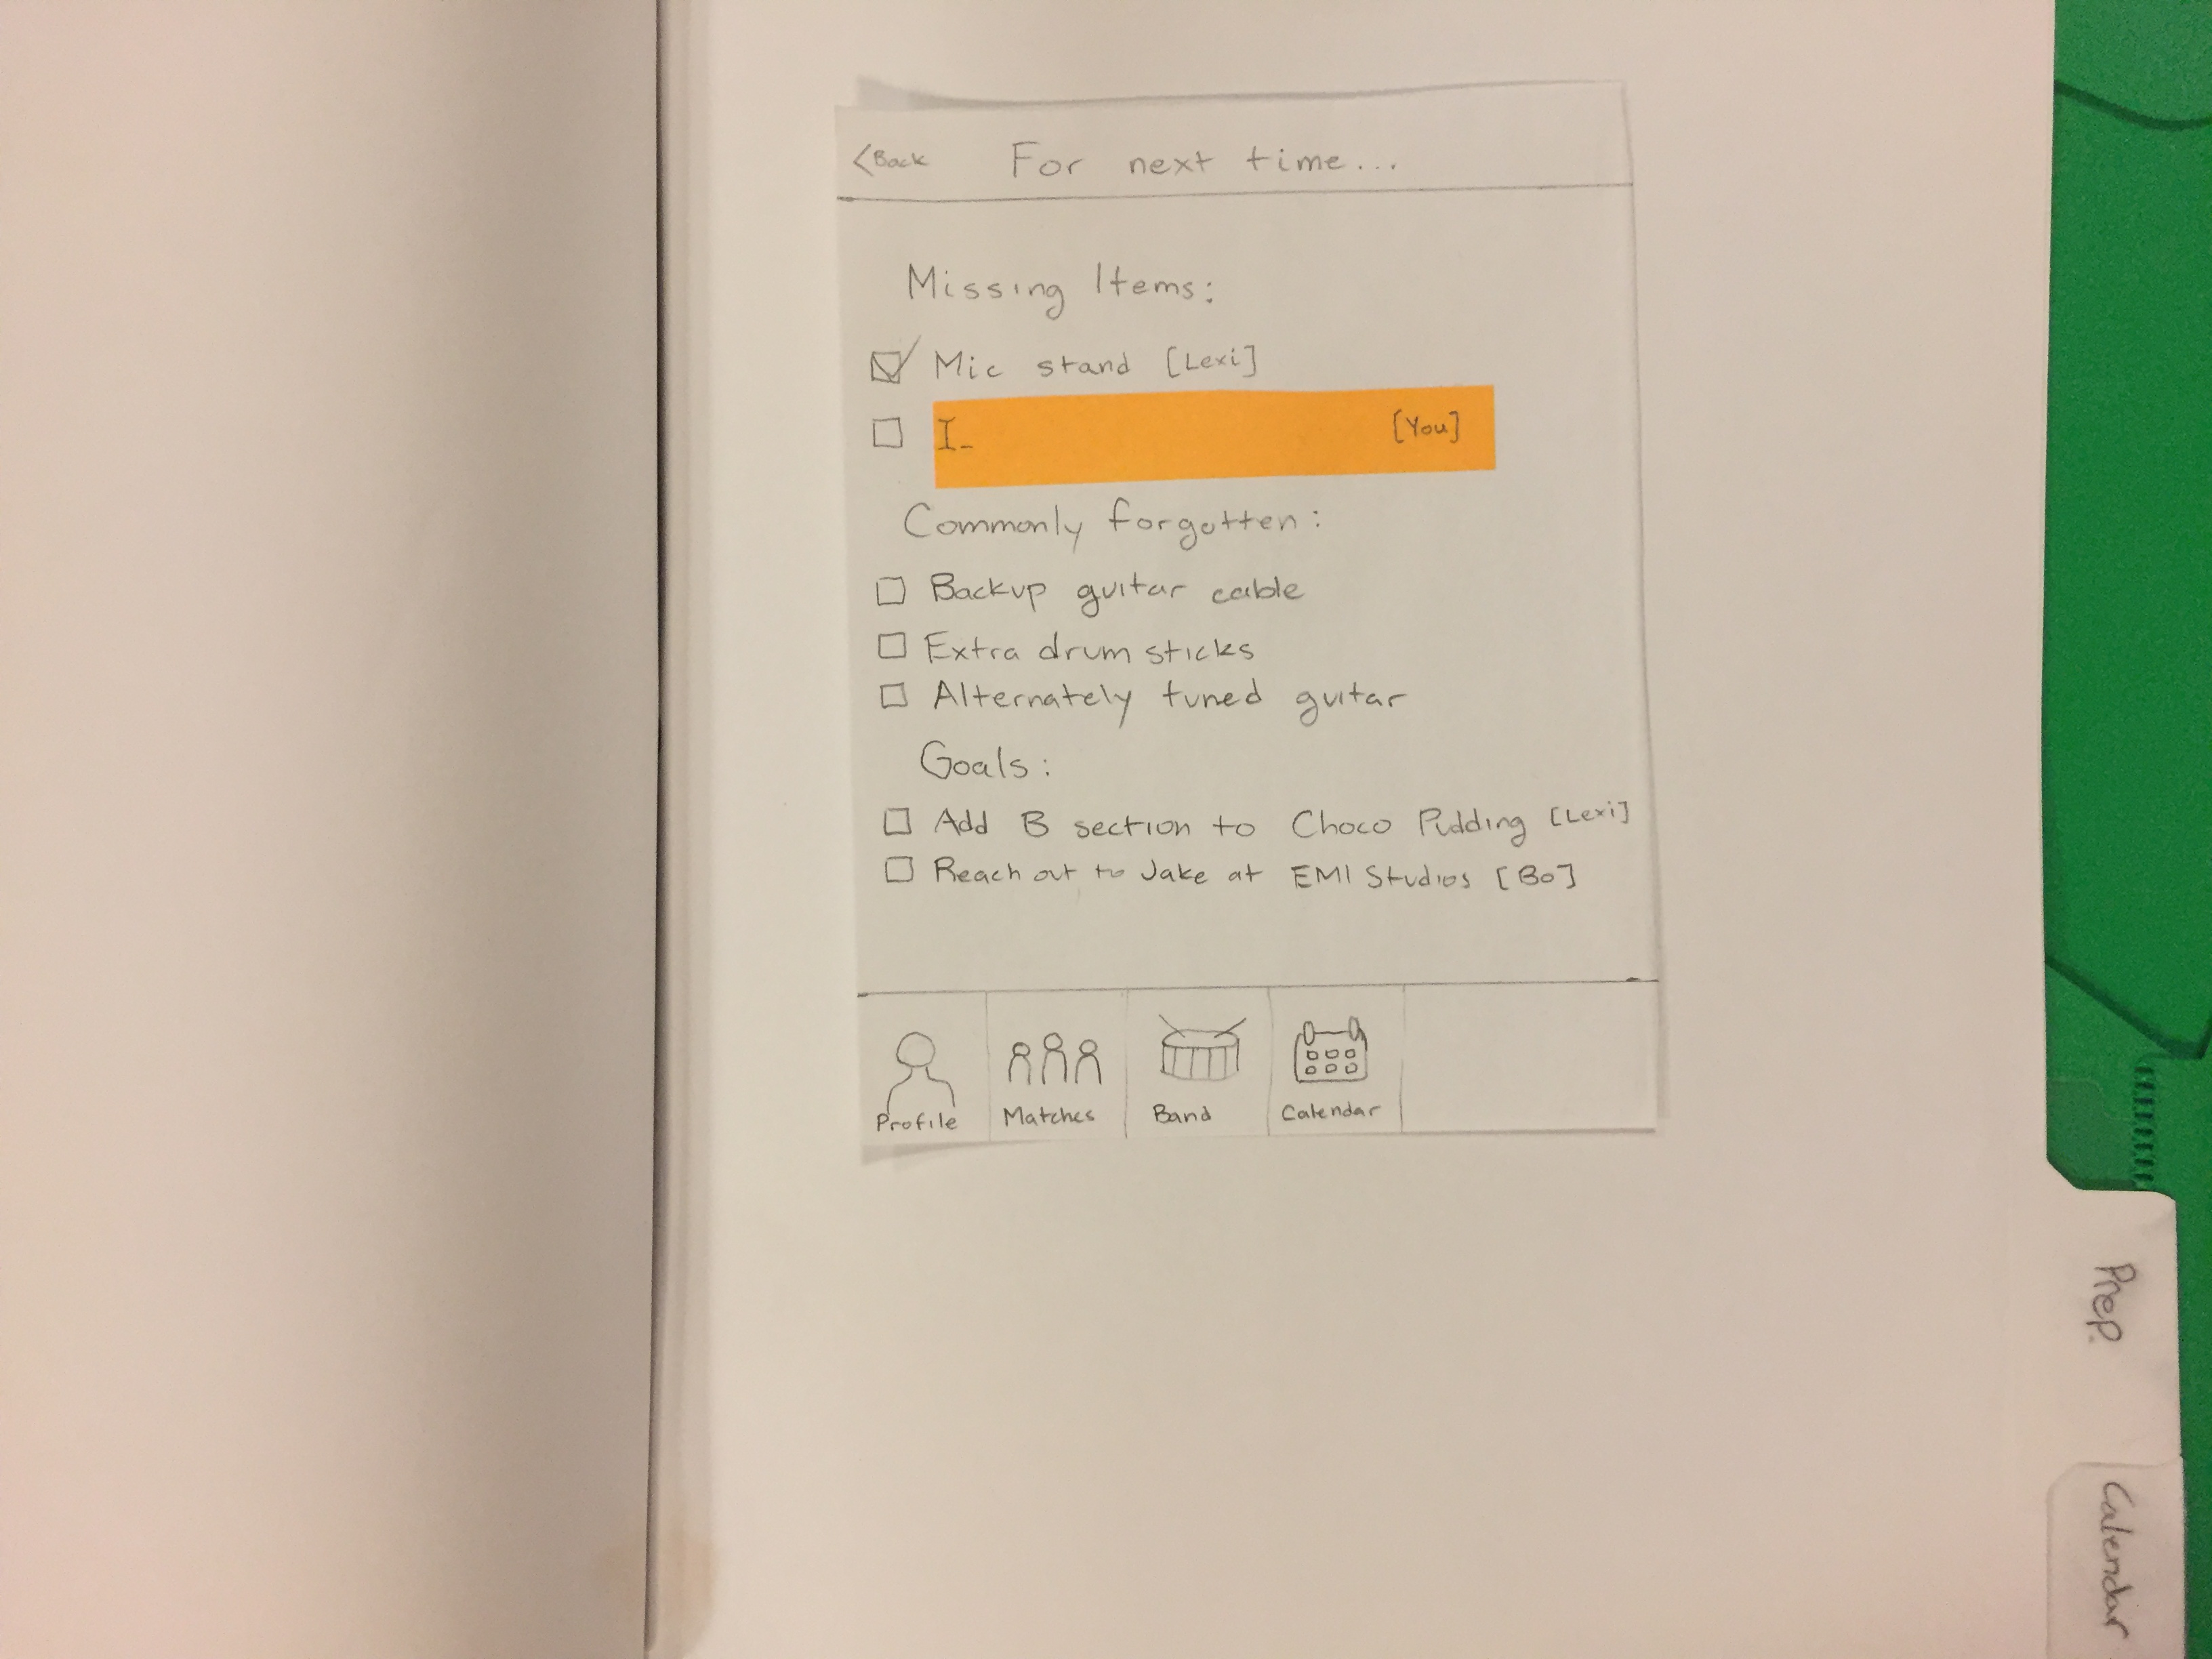 <Back For next time...
Missing Items:
☑ Mic stand [Lexi]
☐ I_ [You]
Commonly forgotten:
☐ Backup guitar cable
☐ Extra drum sticks
☐ Alternately tuned guitar
Goals:
☐ Add B section to Choco Pudding [Lexi]
☐ Reach out to Jake at EMI Studios [Bo]
Profile Matches Band Calendar
Prep
Calendar